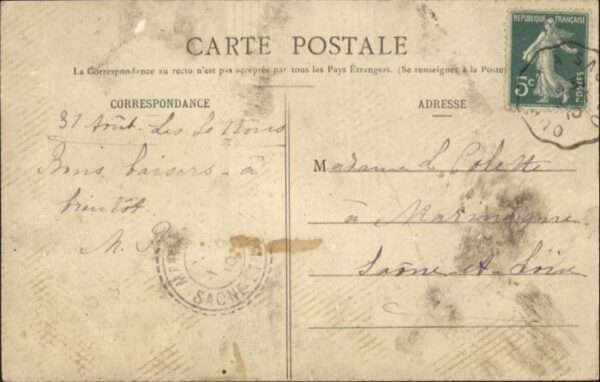 CARTE POSTALE
La Correspondance au recto n'est pas acceptée par tous les Pays Étrangers. (Se renseigner à la Poste)
RÉPUBLIQUE FRANÇAISE
5c
POSTES
CORRESPONDANCE
ADRESSE
31 Août
Bons baisers - à
bientôt
M. P.
Madame L. Colette
à Marmagne
Saône et Loire
SAONE